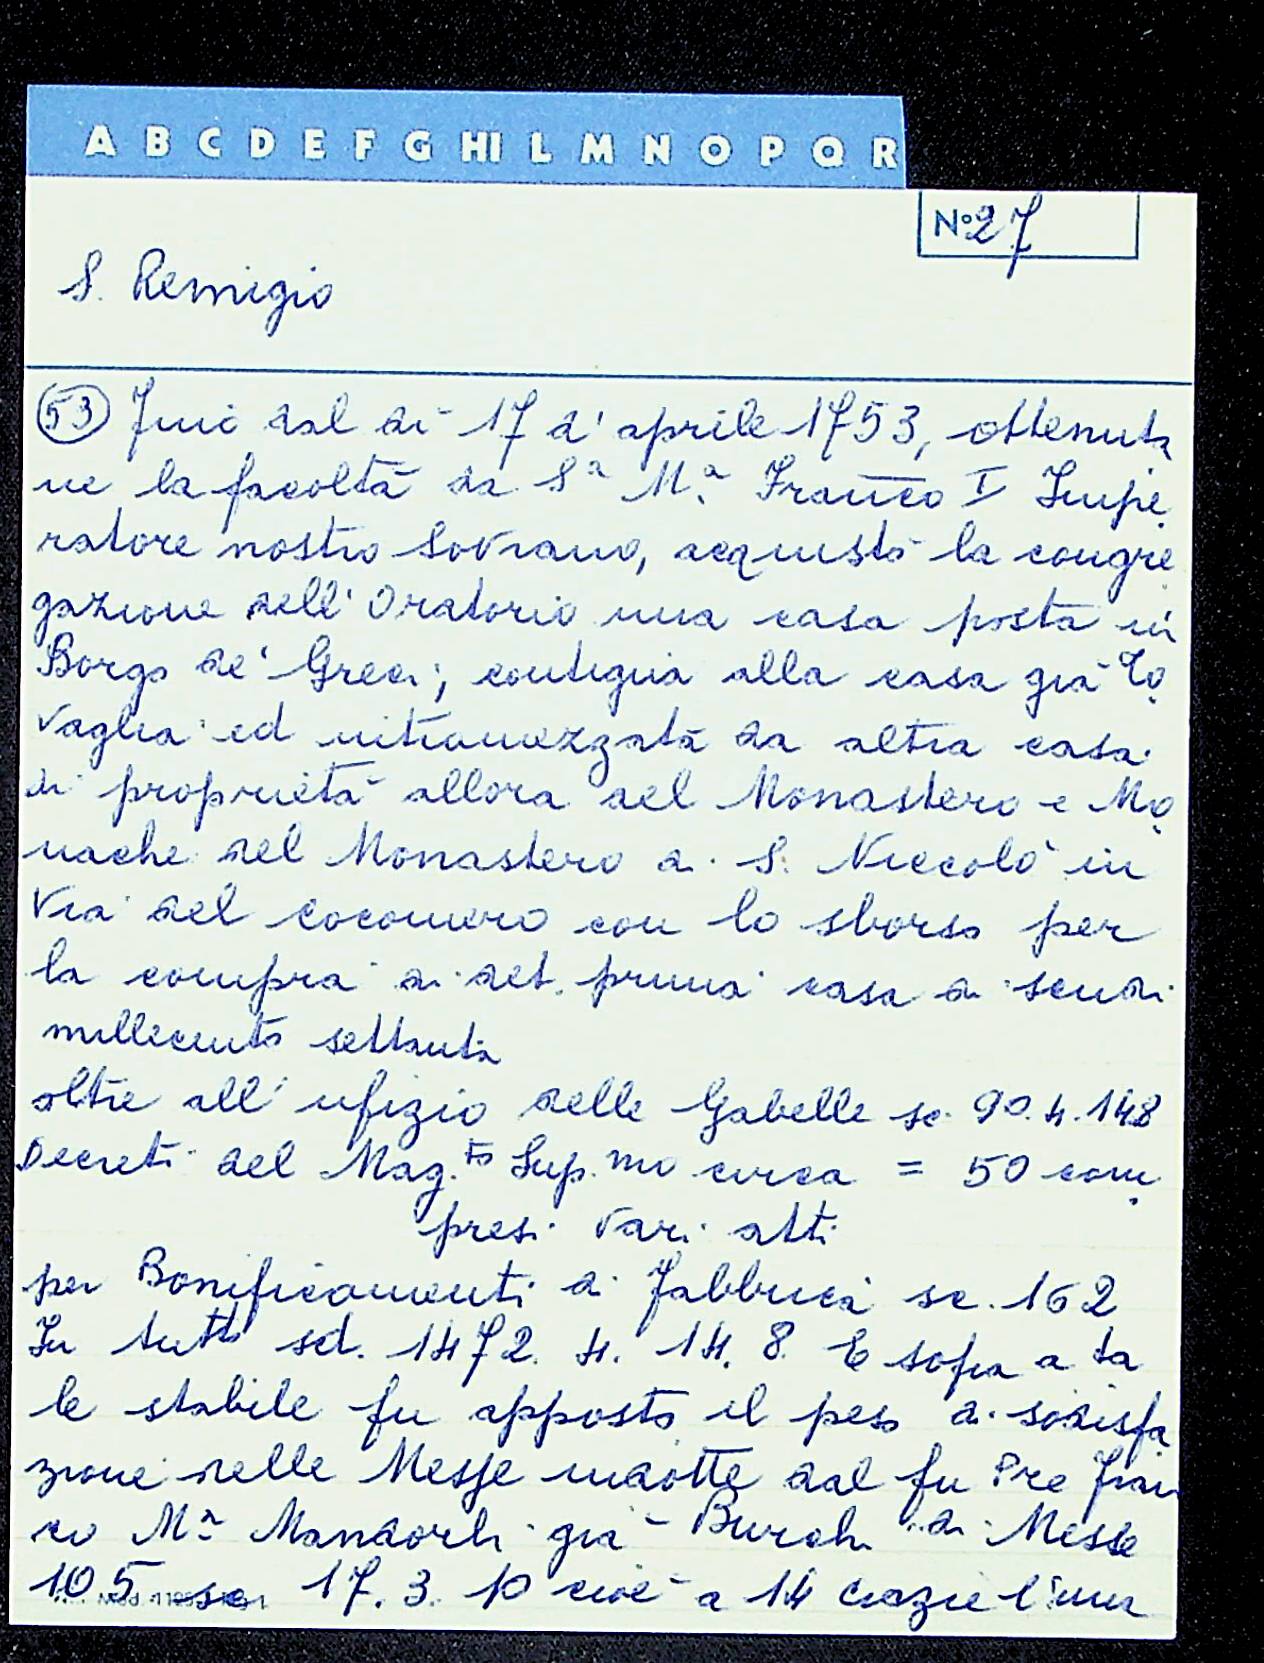 A B C D E F G HI L M N O P Q R
N° 27
S. Remigio
(53) Fino dal dì 17 d'aprile 1753, ottenuta
ne la facoltà da Sª Mª Franco I Impe
ratore nostro Sovrano, acquistò la congre
gazione dell'Oratorio una casa posta in
Borgo de' Greci; contigua alla casa già To
vaglia ed intramezzata da altra casa
di proprietà allora del Monastero e Mo
nache del Monastero di S. Niccolò in
Via del cocomero con lo sborso per
la compra di det. prima casa di scudi
millecento settanta
oltre all'ufizio delle Gabelle sc. 90.4.148
Decreti del Mag.to Sup.mo circa = 50 com
presi vari atti
per Bonificamenti di Fabbrica sc. 162
In tutto sd. 1472. 4. 14. 8. E sopra a ta
le stabile fu apposto il peso di sodisfa
zione delle Messe indotte dal fu Pre Fran
co Mª Mandorli già Burch. di Messe
105 sc 17. 3. 10 cioè a 14 crazie l'una